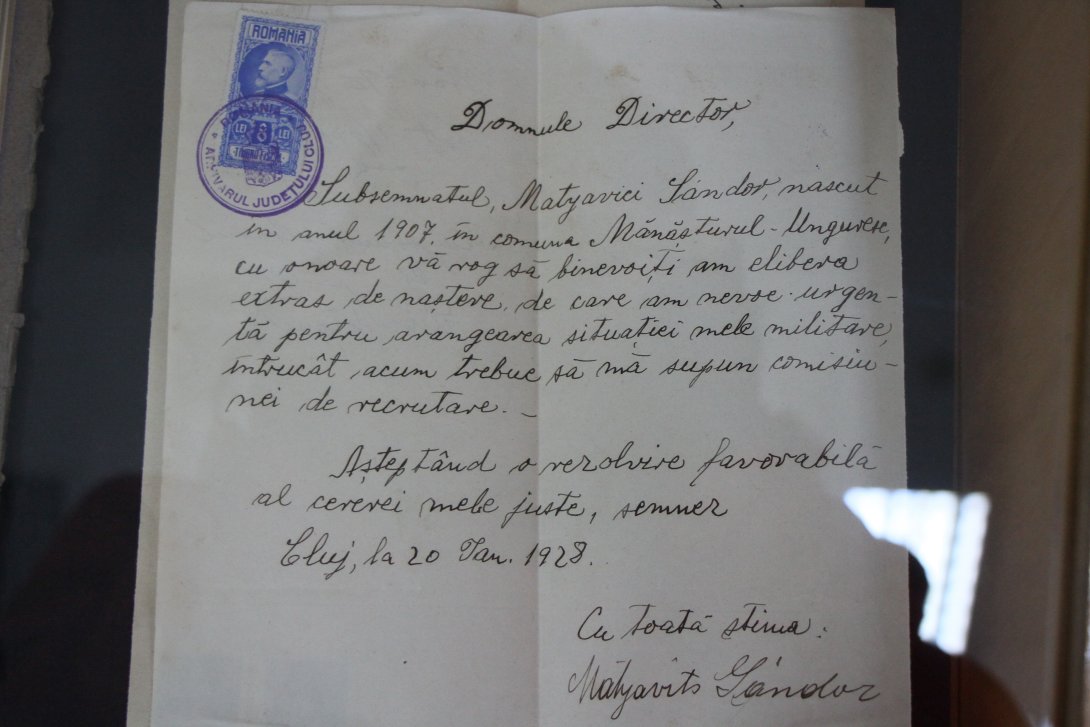 ROMANIA
ROMANIA
LEI 8 LEI
ARHIVARUL JUDEŢULUI CLUJ
Domnule Director,
Subsemnatul, Matyavici Sándor, nascut
in anul 1907. în comuna Mănăşturul-Unguresc,
cu onoare vă rog să binevoiţi am elibera
extras de naştere, de care am nevoe urgen-
tă pentru arangearea situaţiei mele militare,
întrucât acum trebue să mă supun comisiu-
nei de recrutare. –
Aşteptând o rezolvire favorabilă
al cererei mele juste, semnez
Cluj, la 20 Ian. 1928.
Cu toată stima:
Mátyavits Sándor